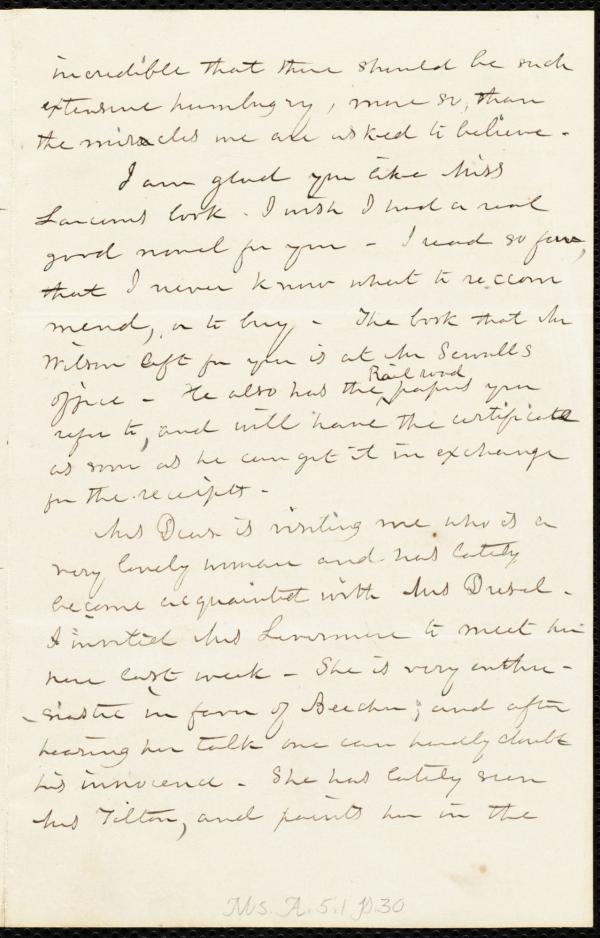 incredible that there should be such
extensive humbugry, more so, than
the miracles we are asked to believe.
I am glad you like Miss
Larcoms book. I wish I had a real
good novel for you - I read so few,
that I never know what to reccom
mend, or to buy. The book that Mr
Wilson left for you is at Mr Sewalls
office - He also has the Rail road papers you
refer to, and will have the certificate
as soon as he can get it in exchange
for the receipts -
Mrs is visiting me who is a
very lovely woman and has lately
become acquainted with Mrs Dresel.
I invited Mrs Livermore to meet her
here last week - She is very enthu-
-siastic in favor of Beecher; and after
hearing her talk one can hardly doubt
his innocence. She has lately seen
Mrs Tilton, and paints her in the
Ms. A. 5.1 p.30